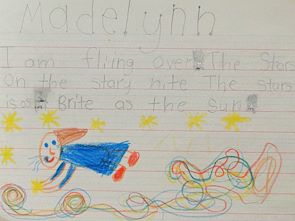 Madelynn
I am fliing over The Stars
On the stary nite The stars
is as Brite as the Sun